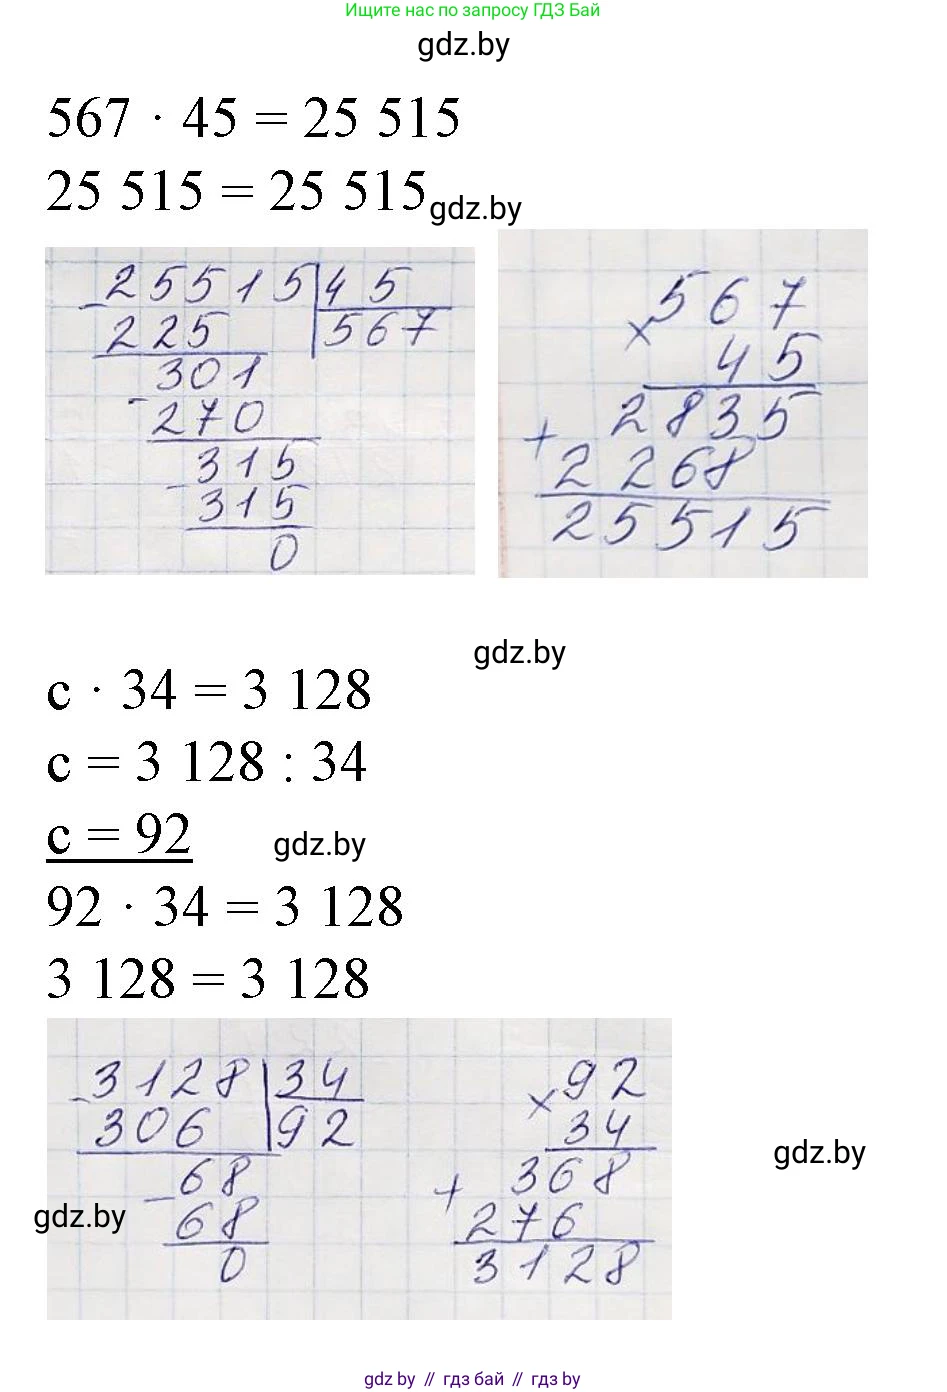 Ищите нас по запросу ГДЗ Бай
gdz.by
567 · 45 = 25 515
25 515 = 25 515
gdz.by
- 25515 | 45
225 | 567
- 301
270
- 315
315
0
567
× 45
2835
+ 2268
25515
gdz.by
с · 34 = 3 128
с = 3 128 : 34
с = 92
gdz.by
92 · 34 = 3 128
3 128 = 3 128
- 3128 | 34
306 | 92
- 68
68
0
gdz.by
92
× 34
368
+ 276
3128
gdz.by
gdz.by // гдз бай // gdz.by